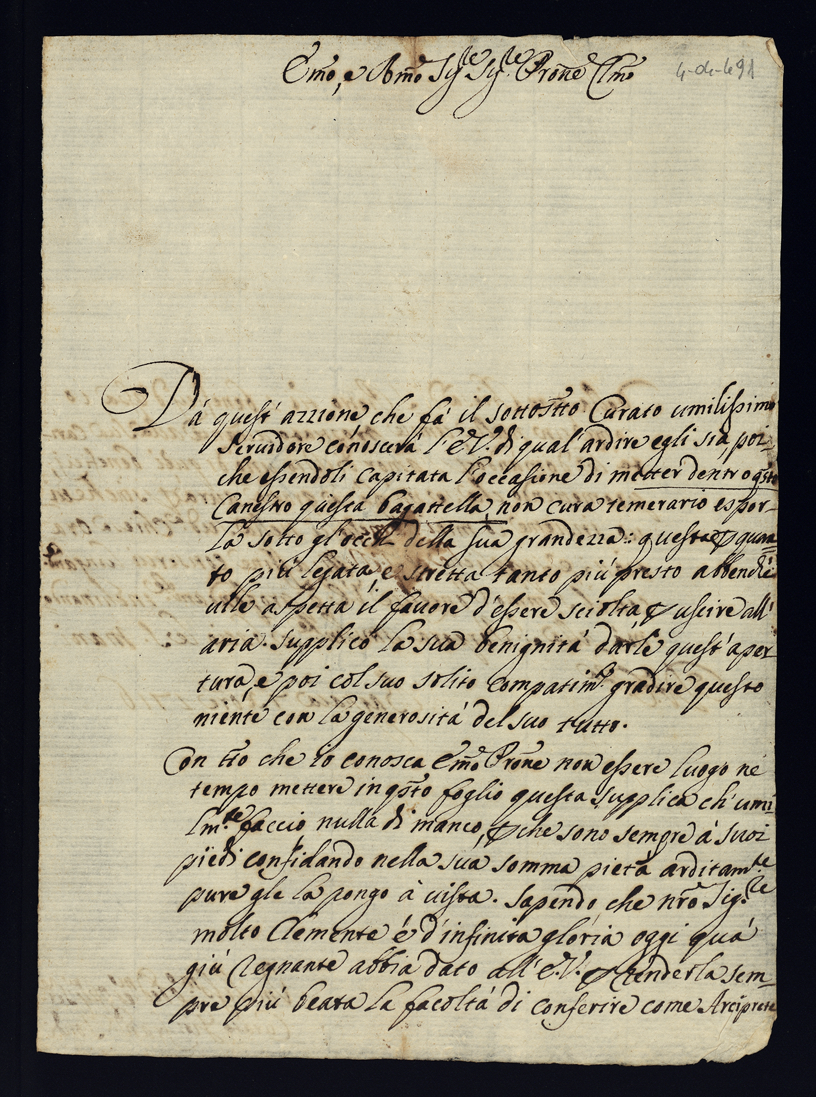 Emo, e Rmo Sigre Sigre Prone Clmo
4-de-491
Dà quest'azzione che fà il sottostto Curato umilissimo
servidore conoscerà l'E.V. di qual'ardire egli sia, poi-
che essendoli capitata l'occasione di metter dentro qsto
Canestro questa bagattella non cura temerario espor-
la sotto gl'occhi della sua grandezza: questa quan-
to più legata, e stretta tanto più presto
aspetta il favore d'essere sciolta, e uscire all'
aria. supplico la sua benignità darle quest'aper-
tura, e poi col suo solito compatimto gradire questo
niente con la generosità del suo tutto.
Con tto che io conosca Emo Prone non essere luogo nè
tempo mettere in qsto foglio questa supplica ch'umi-
lmte faccio nulla di manco, che sono sempre à suoi
piedi confidando nella sua somma pietà arditamte
pure gle la pongo à vista. Sapendo che nro Sigre
molto Clemente é d'infinita gloria oggi quà
giù regnante abbia dato all'E.V. renderla sem-
pre più beata la facoltà di conferire come Arciprete